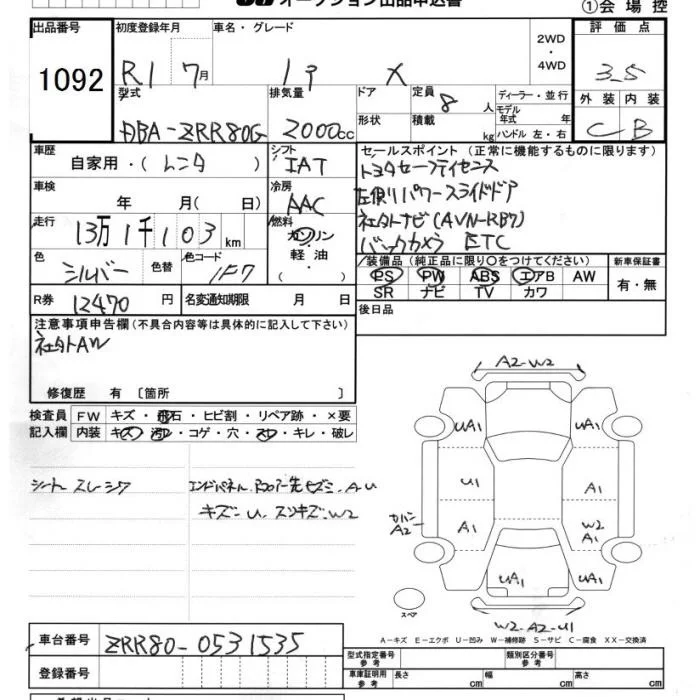 オークション出品申込書
①会場控
出品番号
1092
初度登録年月
R1 7月
車名・グレード
X
2WD
・
4WD
評価点
3-5
外装 内装
C B
型式
DBA-ZRR80G
排気量
2000cc
ドア
形状
定員
8人
積載
kg
ディーラー・並行
モデル年式 年
ハンドル 左・右
車歴
自家用・(レンタ)
シフト
IAT
セールスポイント(正常に機能するものに限ります)
トヨタセーフティセンス
左側パワースライドドア
社外ナビ(AVN-RB7)
バックカメラ ETC
車検
年 月(日)
冷房
AAC
走行
13万1千103km
燃料
ガソリン
・
軽油
・
( )
色
シルバー
色替
色コード
1F7
装備品(純正品に限り○をつけてください)
PS PW ABS エアB AW
SR ナビ TV カワ
新車保証書
有・無
R券 12470円
名変通知期限 月 日
後日品
注意事項申告欄(不具合内容等は具体的に記入して下さい)
社外AW
修復歴 有〔箇所 〕
検査員
記入欄
FW キズ・飛石・ヒビ割・リペア跡・×要
内装 キズ・汚レ・コゲ・穴・スレ・キレ・破レ
シート スレ シワ
エンドパネル、Rフロアー先ヒズミ、A-U
キズ-U、スソキズ-W2
A2-W2
UA1
UA1
U1
A1
カバー
A2
A1
W2
A1
UA1
UA1
UA1
スペア
W2-A2-U1
A-キズ E-エクボ U-凹み W-補修跡 S-サビ C-腐食 XX-交換済
車台番号
ZRR80-0531535
登録番号
型式指定番号
参考
類別区分番号
参考
車庫証明用
参考
長さ cm
幅 cm
高さ cm